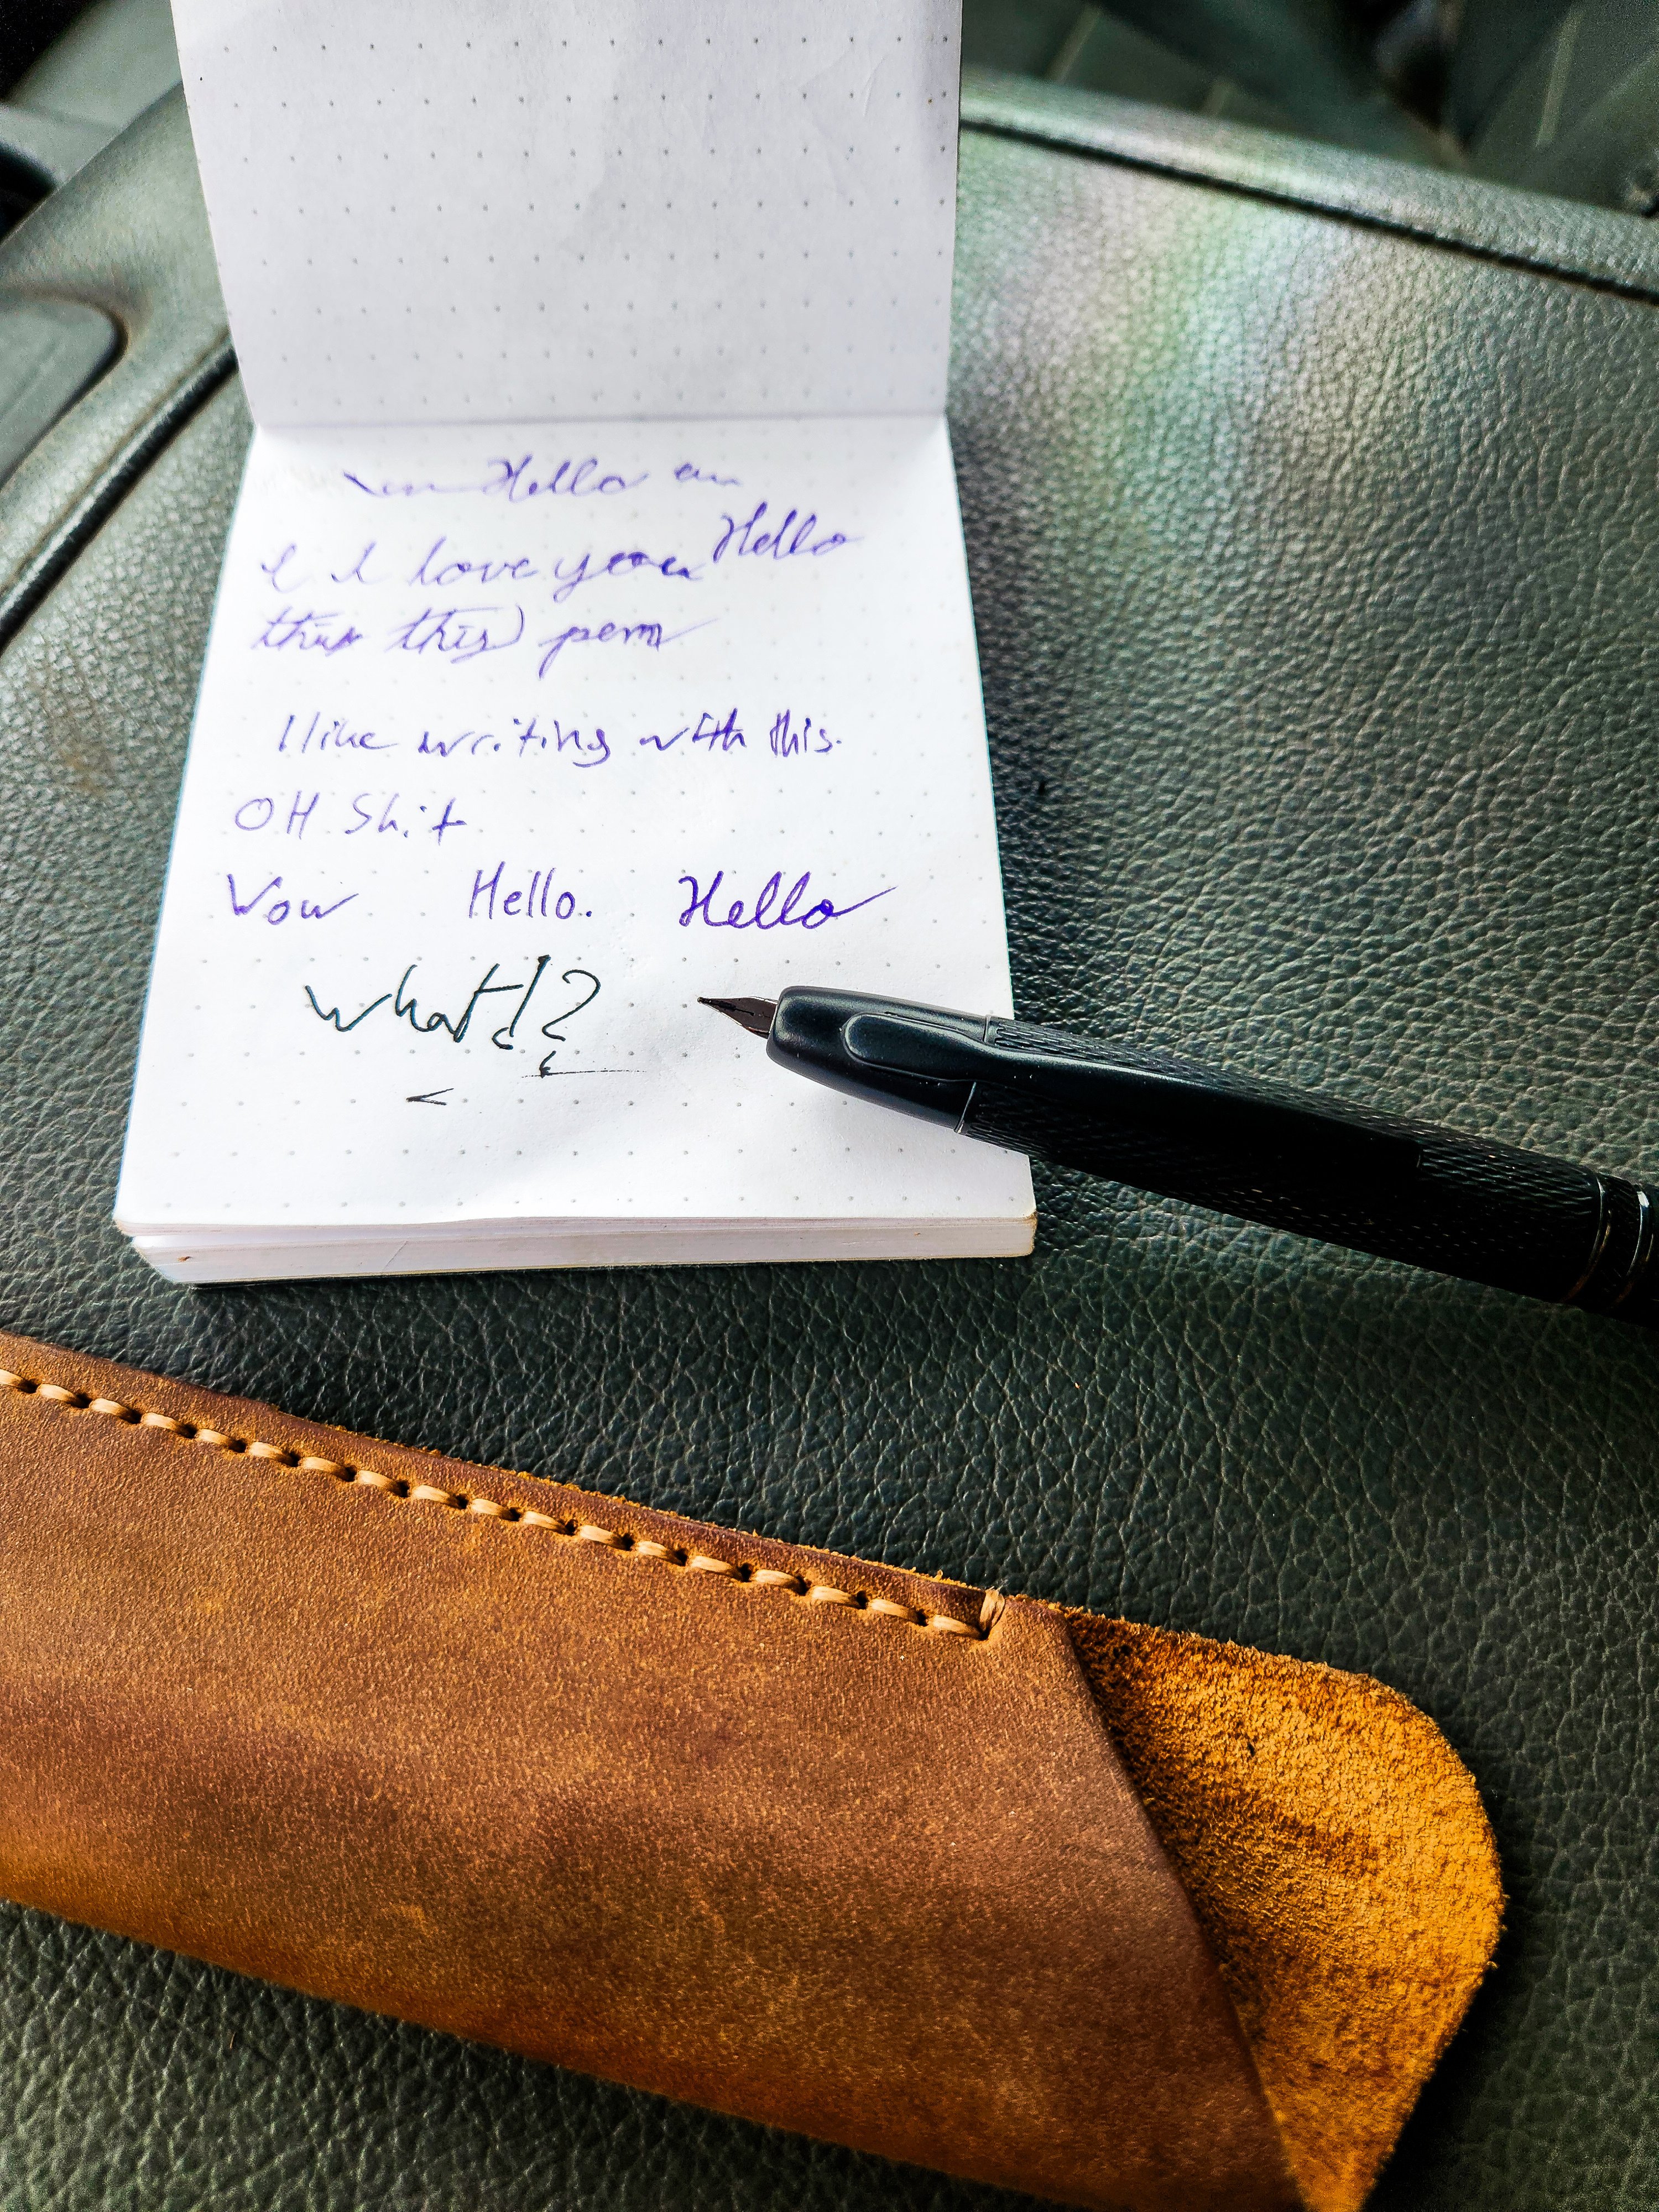 Hello
I I love you Hello
this this pen
I like writing with this.
OH Shit
Wow Hello. Hello
what!?